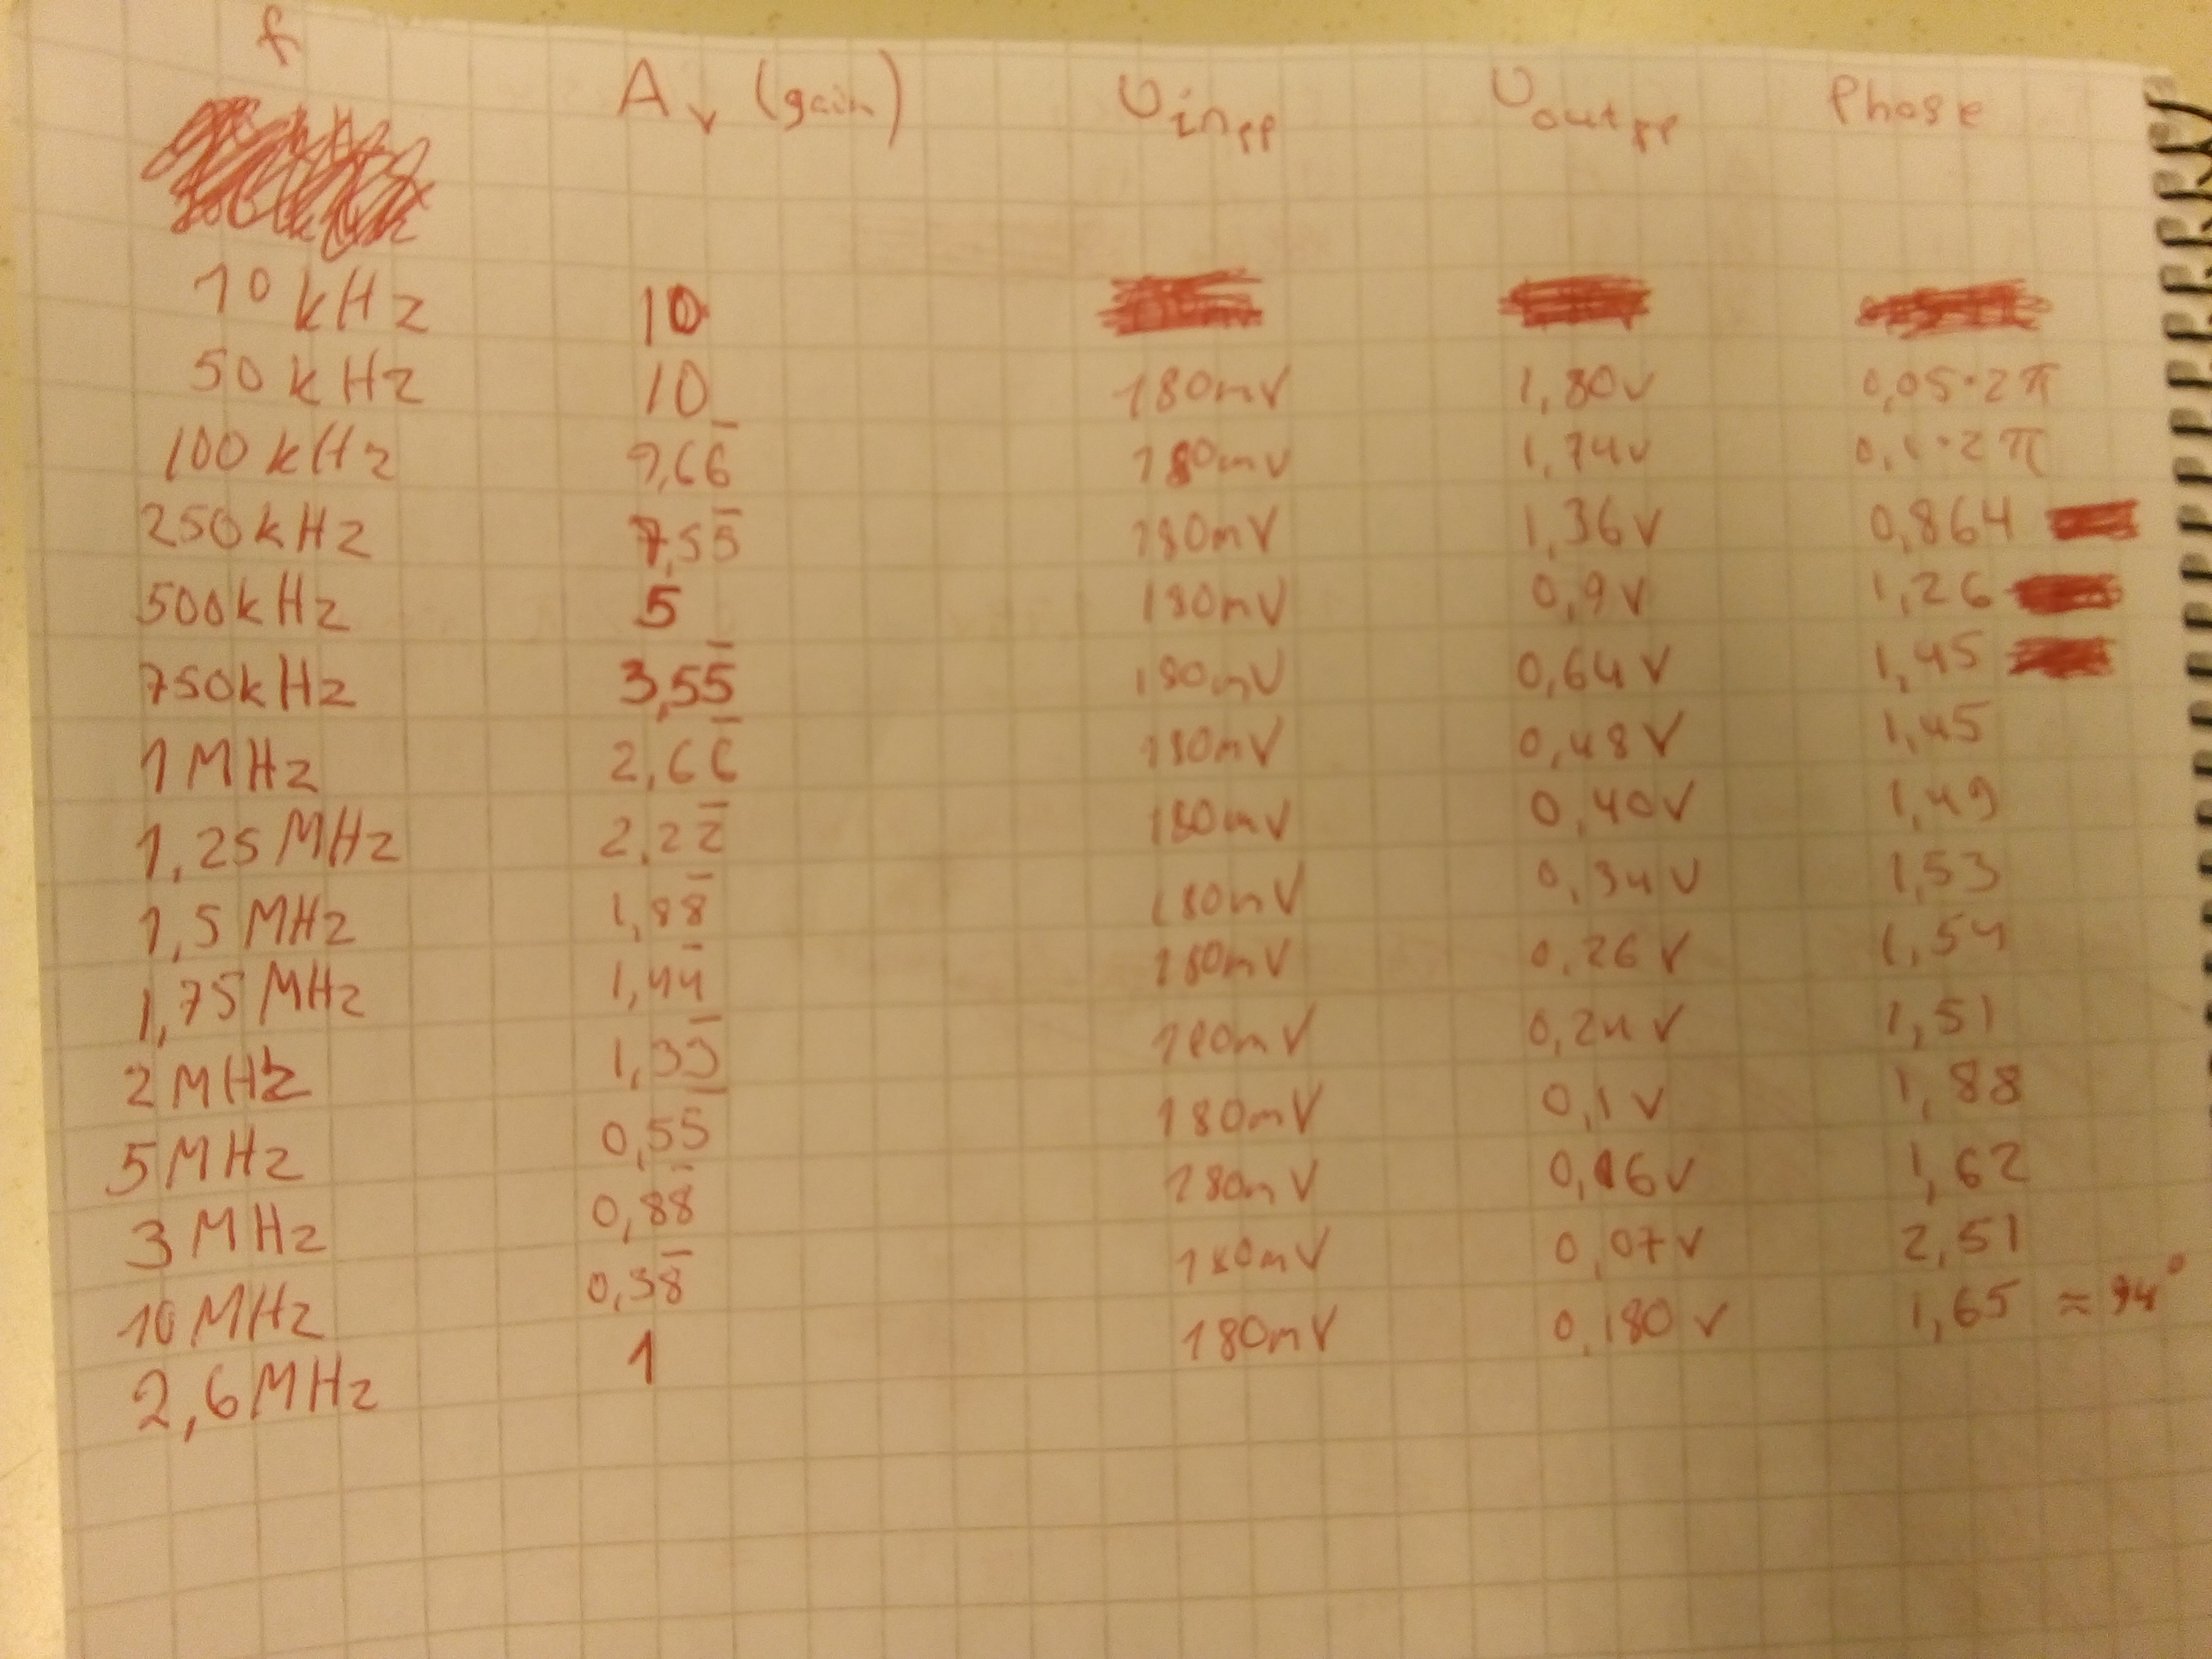 f A_v (gain) U_in_pp U_out_pp Phase
10 kHz 10
50 kHz 10 180mV 1,80V 0,05·2π
100 kHz 9,66̅ 180mV 1,74V 0,1·2π
250 kHz 7,55̅ 180mV 1,36V 0,864
500 kHz 5 180mV 0,9V 1,26
750 kHz 3,55̅ 180mV 0,64V 1,45
1 MHz 2,66̅ 180mV 0,48V 1,45
1,25 MHz 2,22̅ 180mV 0,40V 1,49
1,5 MHz 1,88̅ 180mV 0,34V 1,53
1,75 MHz 1,44̅ 180mV 0,26V 1,54
2 MHz 1,33̅ 180mV 0,24V 1,51
5 MHz 0,55̅ 180mV 0,1V 1,88
3 MHz 0,88̅ 180mV 0,16V 1,62
10 MHz 0,38̅ 180mV 0,07V 2,51
2,6 MHz 1 180mV 0,180V 1,65 ≈ 94°